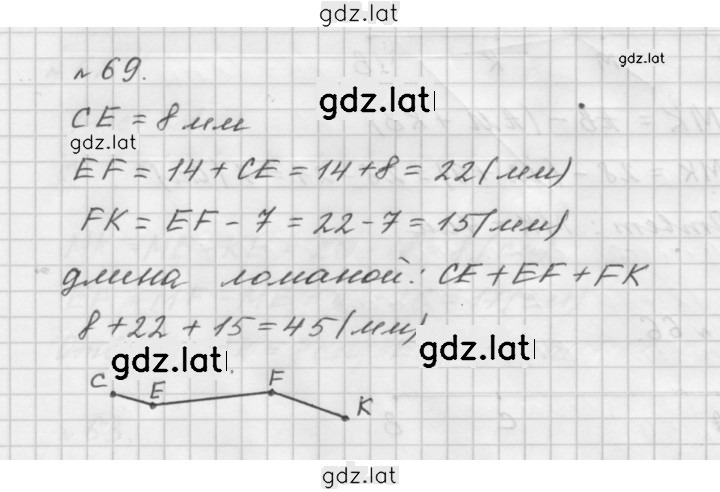 gdz.lat
№ 69.
gdz.lat
gdz.lat
CE = 8 мм
gdz.lat
EF = 14 + CE = 14 + 8 = 22 (мм)
FK = EF - 7 = 22 - 7 = 15 (мм)
длина ломаной: CE + EF + FK
8 + 22 + 15 = 45 (мм)
gdz.lat
gdz.lat
C E F K
gdz.lat